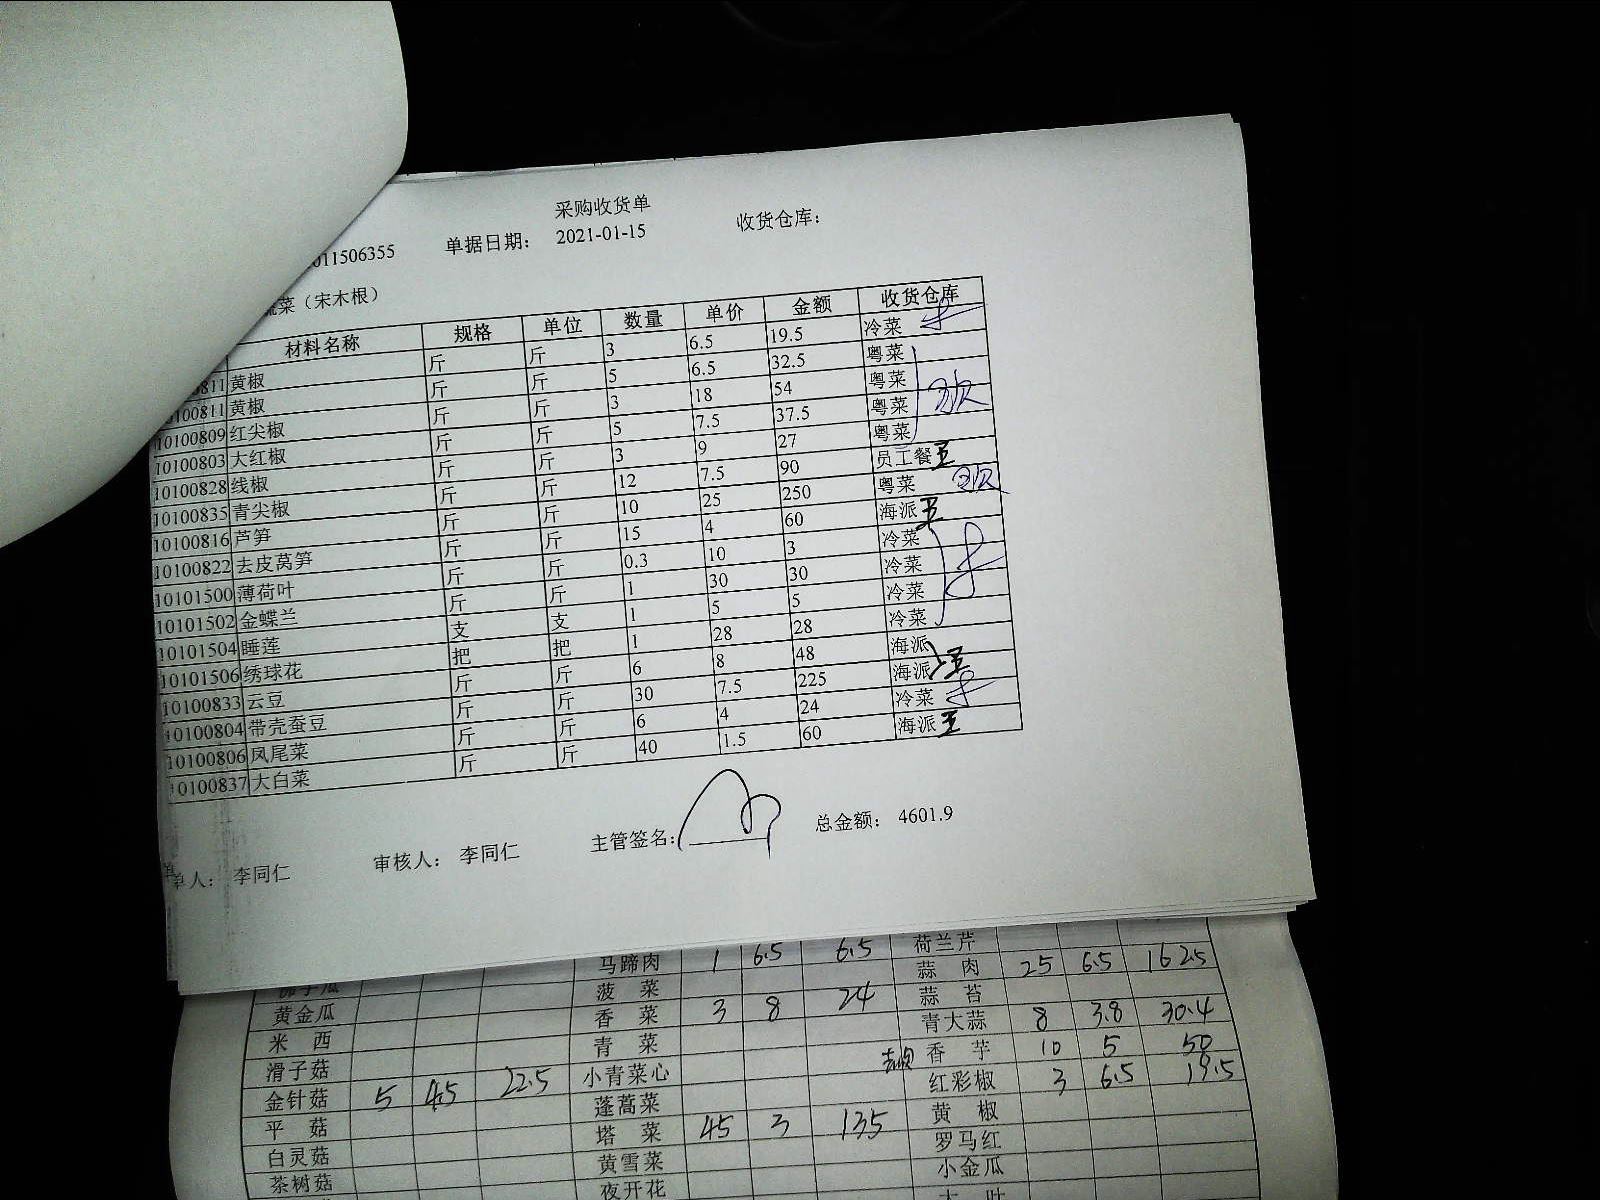 采购收货单
011506355 单据日期： 2021-01-15 收货仓库：
蔬菜（宋木根）
材料名称 规格 单位 数量 单价 金额 收货仓库
0811 黄椒 斤 斤 3 6.5 19.5 冷菜
10100811 黄椒 斤 斤 5 6.5 32.5 粤菜
10100809 红尖椒 斤 斤 3 18 54 粤菜
10100803 大红椒 斤 斤 5 7.5 37.5 粤菜
10100828 线椒 斤 斤 3 9 27 粤菜
10100835 青尖椒 斤 斤 12 7.5 90 员工餐 王
10100816 芦笋 斤 斤 10 25 250 粤菜
10100822 去皮莴笋 斤 斤 15 4 60 海派 王
10101500 薄荷叶 斤 斤 0.3 10 3 冷菜
10101502 金蝶兰 斤 斤 1 30 30 冷菜
10101504 睡莲 支 支 1 5 5 冷菜
10101506 绣球花 把 把 1 28 28 冷菜
10100833 云豆 斤 斤 6 8 48 海派
10100804 带壳蚕豆 斤 斤 30 7.5 225 海派 王
10100806 凤尾菜 斤 斤 6 4 24 冷菜
10100837 大白菜 斤 斤 40 1.5 60 海派 王
单人： 李同仁 审核人： 李同仁 主管签名： 总金额： 4601.9
马蹄肉 1 6.5 6.5 荷兰芹
佛手瓜 菠菜 蒜肉 25 6.5 162.5
黄金瓜 香菜 3 8 24 蒜苔
米西 青菜 青大蒜 8 3.8 30.4
滑子菇 小青菜心 香芋 10 5 50
金针菇 5 4.5 22.5 蓬蒿菜 红彩椒 3 6.5 19.5
平菇 塔菜 45 3 135 黄椒
白灵菇 黄雪菜 罗马红
茶树菇 夜开花 小金瓜